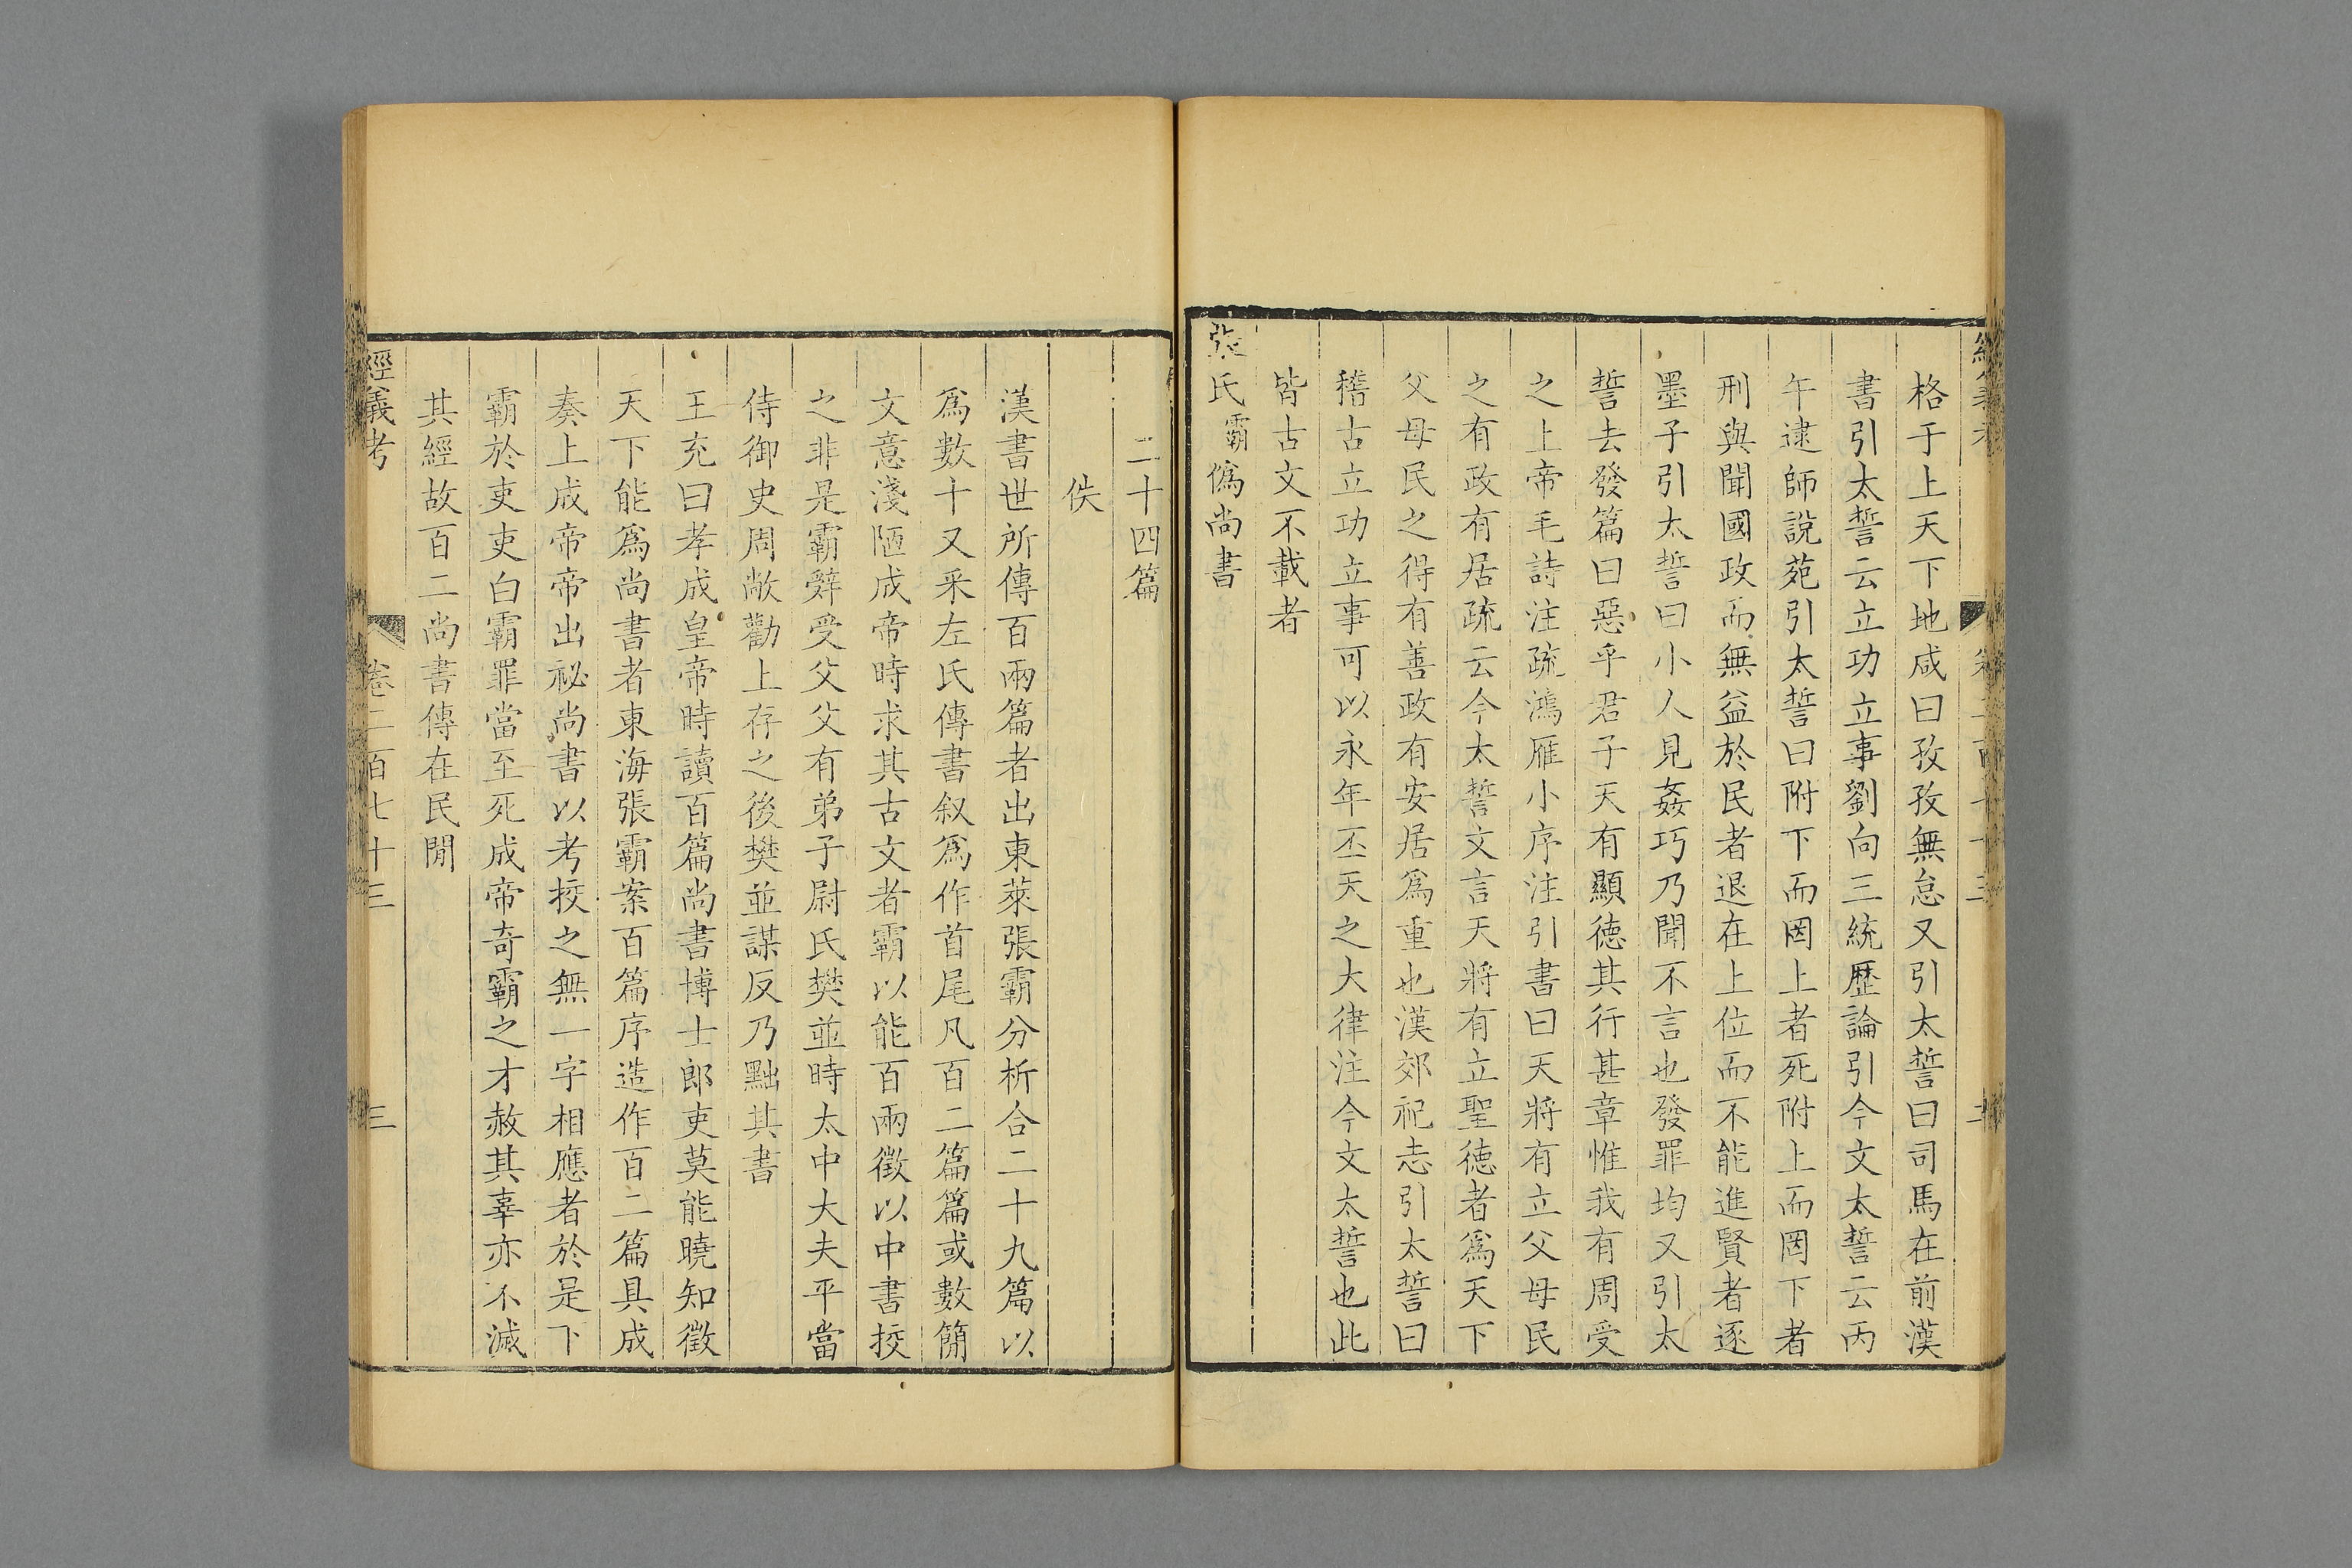 格于上天下地咸曰孜孜無怠又引太誓曰司馬在前漢
書引太誓云立功立事劉向三統歷論引今文太誓云丙
午逮師說苑引太誓曰附下而罔上者死附上而罔下者
刑與聞國政而無益於民者退在上位而不能進賢者逐
墨子引太誓曰小人見姦巧乃聞不言也發罪均又引太
誓去發篇曰惡乎君子天有顯德其行甚章惟我有周受
之上帝毛詩注疏鴻雁小序注引書曰天將有立父母民
之有政有居疏云今太誓文言天將有立聖德者爲天下
父母民之得有善政有安居爲重也漢郊祀志引太誓曰
稽古立功立事可以永年丕天之大律注今文太誓也此
皆古文不載者
張氏霸僞尚書
二十四篇
佚
漢書世所傳百兩篇者出東萊張霸分析合二十九篇以
爲數十又采左氏傳書叙爲作首尾凡百二篇篇或數簡
文意淺陋成帝時求其古文者霸以能百兩徵以中書挍
之非是霸辭受父父有弟子尉氏樊並時太中大夫平當
侍御史周敞勸上存之後樊並謀反乃黜其書
王充曰孝成皇帝時讀百篇尚書博士郎吏莫能曉知徵
天下能爲尚書者東海張霸案百篇序造作百二篇具成
奏上成帝帝出祕尚書以考挍之無一字相應者於是下
霸於吏吏白霸罪當至死成帝奇霸之才赦其辜亦不滅
其經故百二尚書傳在民閒
經義考 卷二百七十三 三